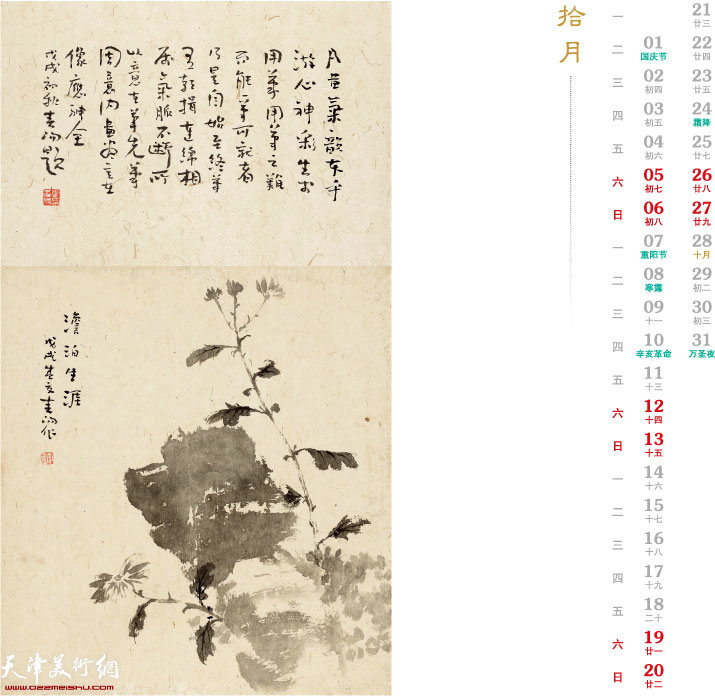 凡畫氣韻本乎
游心神彩生於
用筆用筆之難
乃是自始至終筆
有朝揖連綿相
屬氣脈不斷所
以意在筆先筆
周意内畫盡意在
像應神全
戊戌初秋 題
澹泊生涯
戊戌 作
天津美術網
www.022meishu.com
拾月
一 21
廿三
二 01 22
国庆节 廿四
三 02 23
初四 廿五
四 03 24
初五 霜降
五 04 25
初六 廿七
六 05 26
初七 廿八
日 06 27
初八 廿九
一 07 28
重阳节 十月
二 08 29
寒露 初二
三 09 30
十一 初三
四 10 31
辛亥革命 万圣夜
五 11
十三
六 12
十四
日 13
十五
一 14
十六
二 15
十七
三 16
十八
四 17
十九
五 18
二十
六 19
廿一
日 20
廿二